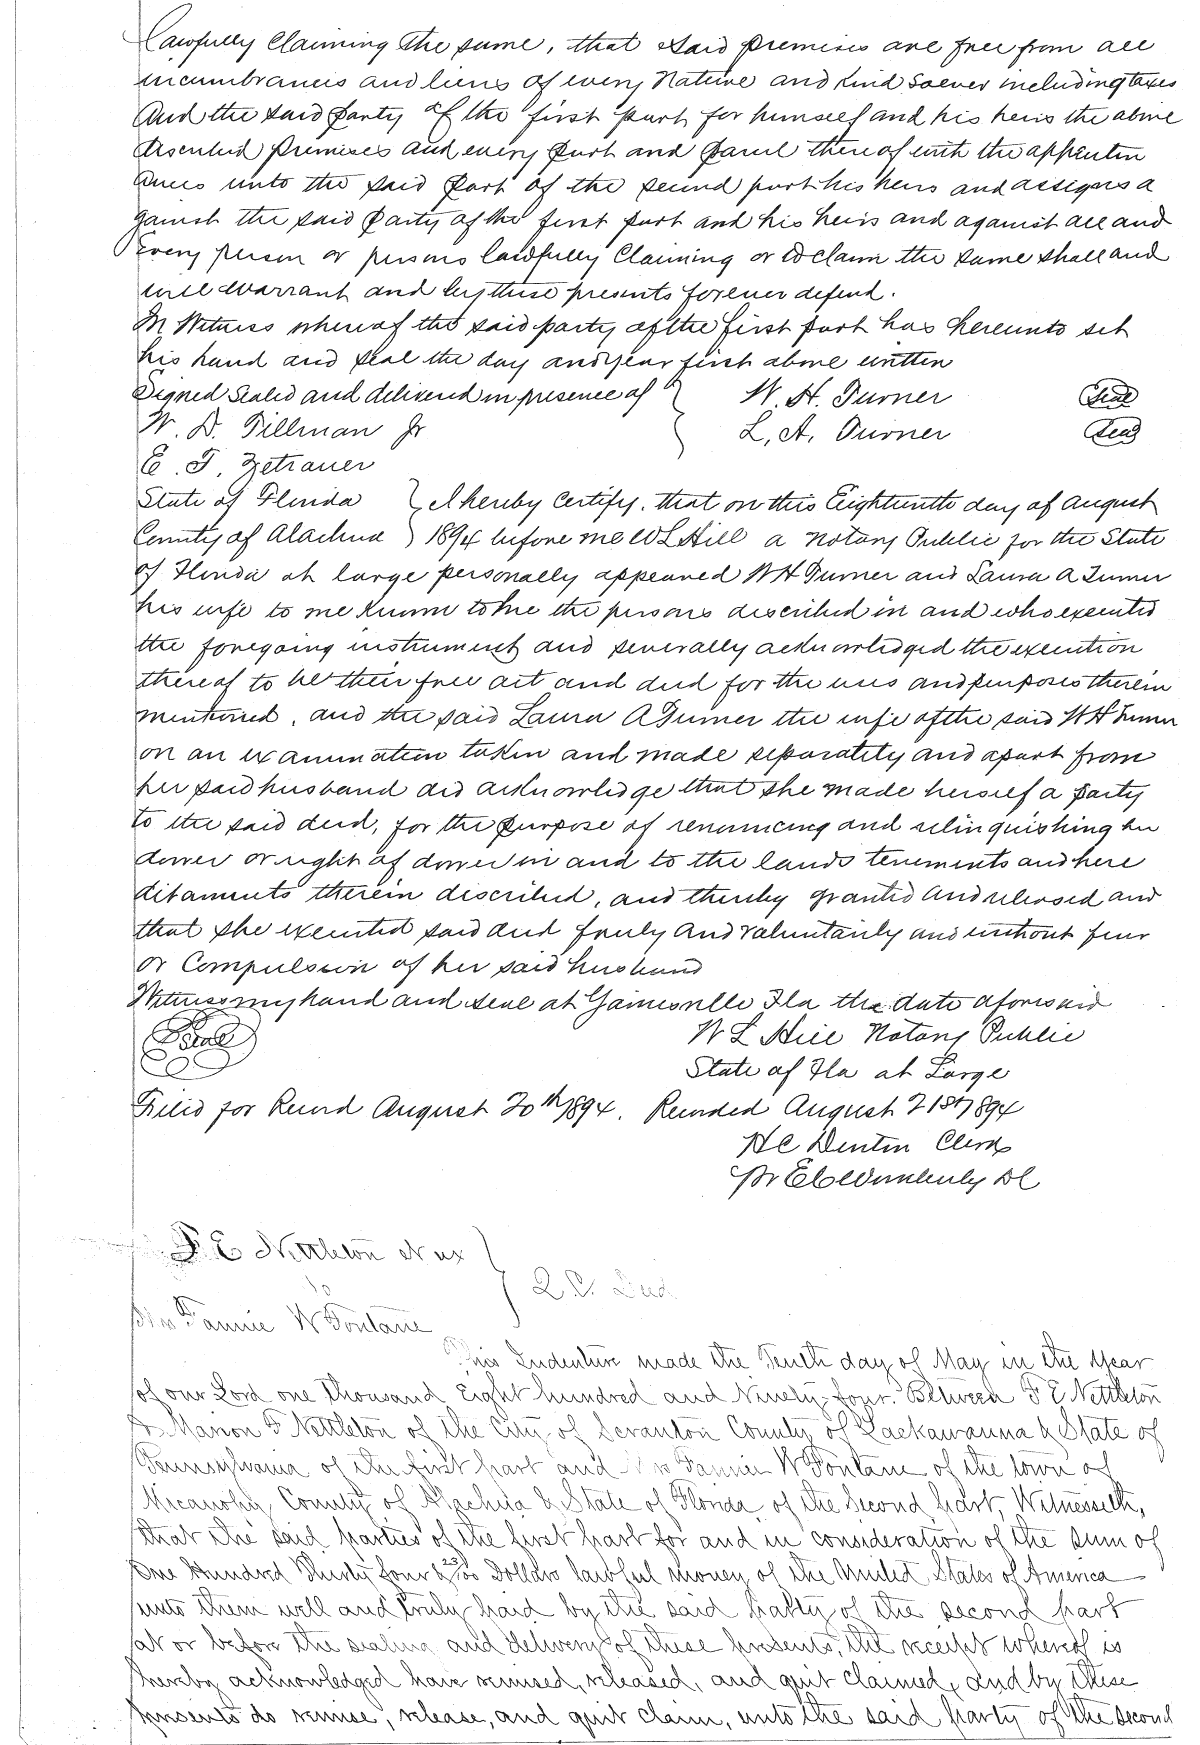 Lawfully Claiming the same, that said premises are free from all
incumbrancis and liens of every Nature and Kind soever including taxes
And the said party of the first part for himself and his heirs the above
discribed premises and every part and parcel thereof with the appertin
ances unto the said part of the second part his heirs and assigns a
gainst the said party of the first part and his heirs and against all and
every person or persons lawfully Claiming or to claim the same shall and
will warrant and by these presents forever defend.
In Witness whereof the said party of the first part has hereunto set
his hand and seal the day and year first above written
Signed Sealed and delivered in presence of } W. H. Turner (Seal)
W. D. Tillman Jr } L. A. Turner (Seal)
E. T. Zetrauer
State of Florida } I hereby Certify, that on this Eighteenth day of August
County of Alachua } 1894 before me W L Hill a Notary Public for the State
of Florida at large personally appeared W H Turner and Laura A Turner
his wife to me Known to be the persons discribed in and who executed
the foregoing instrument and severally acknowledged the execution
thereof to be their free act and deed for the uses and purposes therein
mentioned, and the said Laura A Turner the wife of the said W H Turner
on an examination taken and made separately and apart from
her said husband did acknowledge that she made herself a party
to the said deed, for the purpose of renouncing and relinquishing her
dower or right of dower in and to the lands tenements and here
ditaments therein discribed, and thereby granted and released and
that she executed said deed freely and voluntarily and without fear
or Compulsion of her said husband
Witness my hand and seal at Gainesville Fla the date aforesaid
(Seal) W L Hill Notary Public
State of Fla at Large
Filed for Record August 20th 1894. Recorded August 21st 1894
H C Denton Clerk
Pr E C Wimberly DC
F. E Nettleton et ux }
to } Q. C. Deed
Mrs Fannie W Fontane
This Indenture made the Tenth day of May in the Year
of our Lord one thousand Eight hundred and Ninety-four. Between F E Nettleton
& Marion F Nettleton of the City of Scranton County of Lackawanna & State of
Pennsylvania of the first part and Mrs Fannie W Fontane of the town of
Micanopy, County of Alachua & State of Florida, of the Second part, Witnesseth,
that the said parties of the first part for and in consideration of the sum of
One Hundred Thirty four & 23/100 Dollars lawful money of the United States of America
unto them well and truly paid by the said party of the second part
at or before the sealing and delivery of these presents, the receipt whereof is
hereby acknowledged have remised, released, and quit claimed, and by these
presents do remise, release, and quit claim, unto the said party of the second